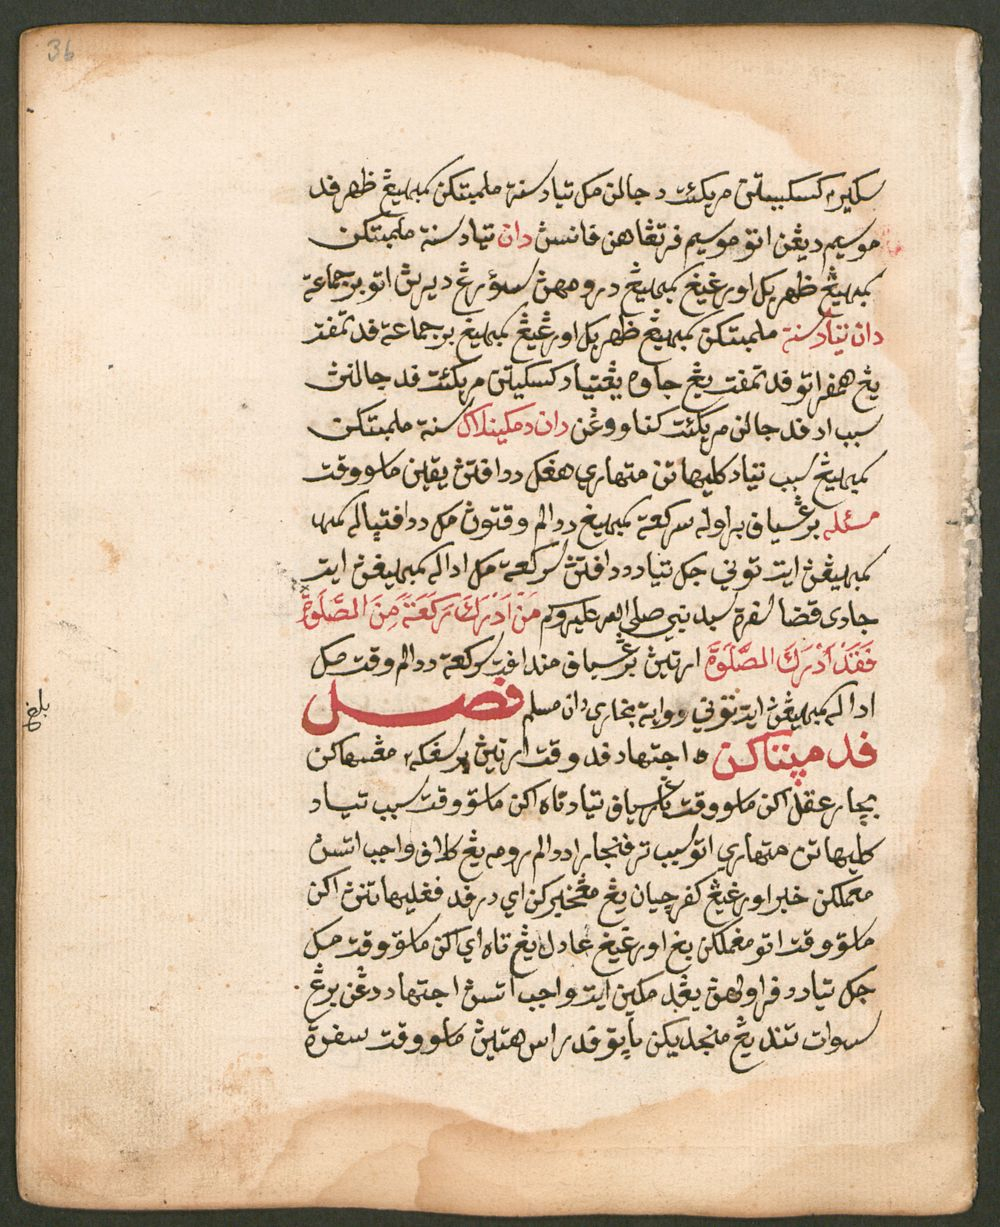 36
سکلين کسکيتن مريکئت د جالن مک تياد سنة ملمبتکن کمبهيڠ ظهر ڤد
موسيم ديڠن اتو موسيم ڤرتڠاهن ڤانسڽ دان تياد سنة ملمبتکن
سمبهيڠ ظهر بݢ اورڠ يڠ سمبهيڠ درومهڽ سئورڠ ديرڽ اتو برجماعة
دان تياد سنة ملمبتکن سمبهيڠ ظهر بݢ اورڠ يڠ سمبهيڠ برجماعة ڤد تمڤت
يڠ همڤر اتو ڤد تمڤت يڠ جاوه يڠ تياد کسکيتن مريکئت ڤد جالنڽ
سبب اد ڤد جالن مريکئت کناووڠن دان دمکينلاݢ سنة ملمبتکن
سمبهيڠ سبب تياد کليهاتن متهاري هڠݢ دداڤتڽ يقين ماسو وقت
مسئله برڠسياڤ براوله سرکعة سمبهيڠ ددالم وقتوڽ مک دداڤتياله سمبـ
سمبهيڠڽ ايت توني جک تياد دداڤتڽ سرکعة مک اداله سمبهيڠڽ ايت
جادي قضا سڤرة سبد نبي صلى الله عليه وسلم مَنْ اَدْرَكَ رَكَعَةً مِنَ الصَّلَوةِ
فَقَدْ اَدْرَكَ الصَّلَوةَ ارتيڽ برڠسياڤ منداڤت سرکعة ددالم وقت مک
اداله سمبهيڠڽ ايت توني رواية بخاري دان مسلم فصل
ڤد مڽتاکن اجتهاد ڤد وقت ارتيڽ برسڠکه مڠـسهاکن
بچار عقل اکن ماسو وقت بارڠسياڤ تياد تاه اکن ماسق وقت سبب تياد
کليهاتن متهاري اتو سبب ترڤنجارا ددالم رومه يڠ کلم واجب اتسڽ
مڠملکن خبر اورڠ يڠ کڤرچيان يڠ مڠخبرکن اي درڤد ڤڠليهاتنڽ اکن
ماسق وقت اتو مڠملکن يڠ اورڠ يڠ عادل يڠ تاه اي اکن ماسق وقت مک
جک تياد دڤراولهڽ يڠد مکين ايت واجب اتسڽ اجتهاد دڠن برڠ
سوات تندا يڠ منجديکن ياڽتو ڤد راس هتيڽ ماسو وقت سڤرة
بلغ